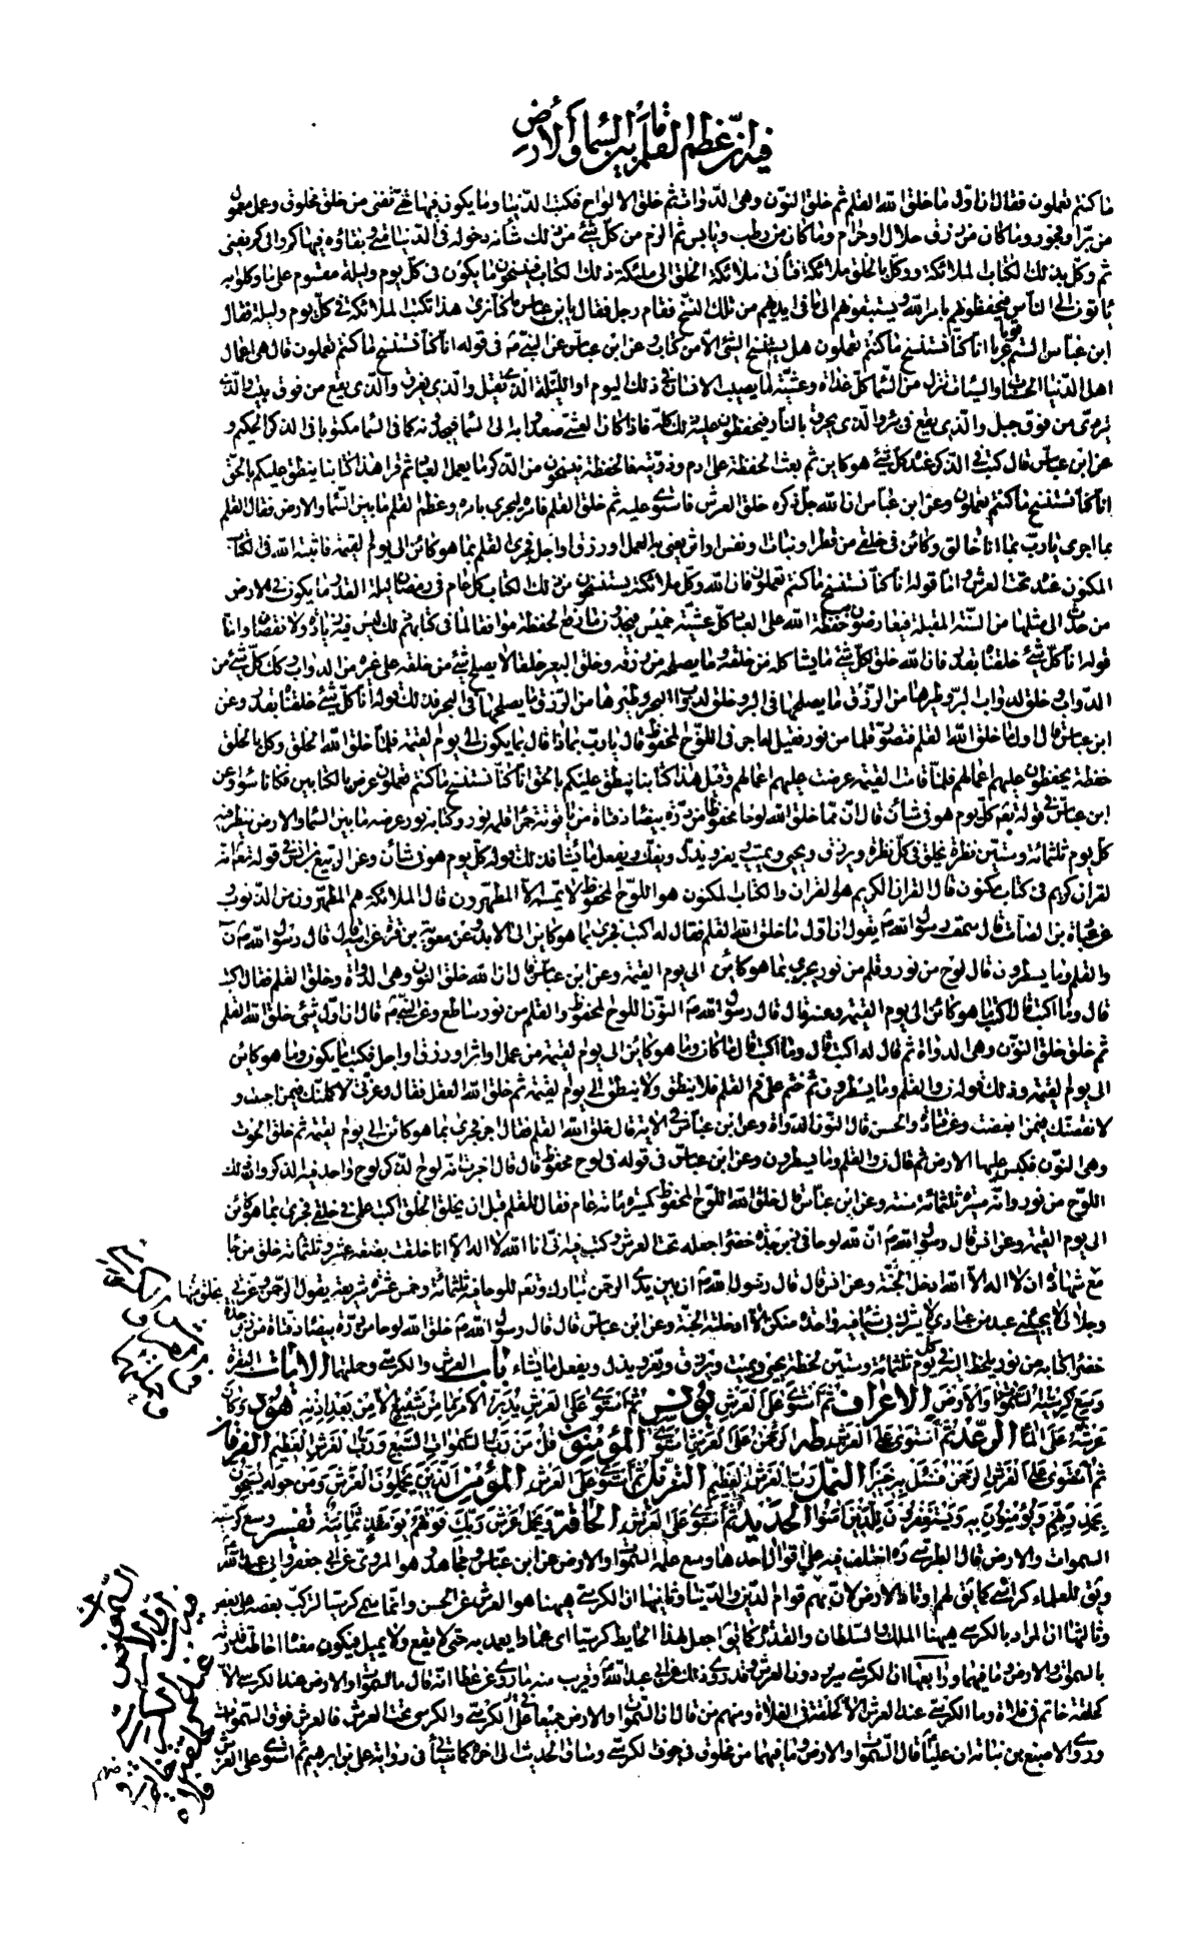 فيه ان عظم القلم ما بين السماء والأرض
ما كنتم تعملون فقال ان اول ما خلق الله القلم ثم خلق النون وهى الدواة ثم خلق الالواح فكتب الدنيا وما يكون فيها حتى تفنى من خلق مخلوق وعمل معمول
من بر او فجور وما كان من رزق حلال او حرام وما كان من رطب ويابس ثم الزم من كل شئ من ذلك شأنه دخوله فى الدنيا متى وبقاؤه فيها كم والى كم يفنى
ثم وكل بذلك الكتاب الملائكة ووكل بالخلق ملائكة فتأتى ملائكة الخلق الى ملئكة ذلك الكتاب فينسخون ما يكون فى كل يوم وليلة مقسوم على ما وكلوا به
يأتون الى الناس فيحفظونهم بامر الله ويستبقونهم الى ما فى ايديهم من تلك النسخ فقام رجل فقال يا بن عباس ما كنا نرى هذا تكتب الملائكة فى كل يوم وليلة فقال
ابن عباس الستم قوما عربا انا كنا نستنسخ ما كنتم تعملون هل يستنسخ الشئ الا من كتاب وعن ابن عباس عن النبى ص فى قوله انا كنا نستنسخ ما كنتم تعملون قال هى اعمال
اهل الدنيا الحسنات والسيئات تنزل من السماء كل غداة وعشية ما يصيب الانسان فى ذلك اليوم او الليلة الذى يقتل والذى يغرق والذى يقع من فوق بيت والذى
يتردى من فوق جبل والذى يقع فى بئر والذى يحرق بالنار فيحفظون عليه ذلك كله فاذا كان العشى صعدوا به الى السماء فيجدونه كما فى السماء مكتوبا فى الذكر الحكيم و
عن ابن عباس قال كتب فى الذكر عنده كل شئ هو كاين ثم بعث الحفظة على ادم وذريته فالحفظة ينسخون من الذكر ما يعمل العباد ثم قرا هذا كتابنا ينطق عليكم بالحق
انا كنا نستنسخ ما كنتم تعملون وعن ابن عباس ان الله جل ذكره خلق العرش فاستوى عليه ثم خلق القلم فامره ليجرى باذنه وعظم القلم ما بين السماء والارض فقال القلم
بما اجرى يا رب بما انا خالق وكائن فى خلقى من قطر او نبات او نفس او اثر يعنى به العمل او رزق او اجل فجرى القلم بما هو كائن الى يوم القيمة فاثبته الله فى الكتاب
المكنون عنده تحت العرش واما قوله انا كنا نستنسخ ما كنتم تعملون فان لله وكل ملائكة يستنسخون من ذلك الكتاب كل عام فى رمضان ليلة القدر ما يكون فى الارض
من حدث الى مثلها من السنة المقبلة فيعارضون به حفظة الله على العباد كل عشية خميس فيجدون ما رفع الحفظة موافقا لما فى كتابهم ذلك ليس فيه زيادة ولا نقصان واما
قوله انا كل شئ خلقناه بقدر فان الله خلق لكل شئ ما يشاكله من خلقه وما يصلحه من رزقه وخلق البعير خلقا لا يصلح شئ من خلقه على غيره من الدواب وكذلك كل شئ من
الدواب وخلق لدواب البر وطيرها من الرزق ما يصلحها فى البر وخلق لدواب البحر وطيرها من الرزق ما يصلحها فى البحر فذلك قوله انا كل شئ خلقناه بقدر وعن
ابن عباس قال اول ما خلق الله القلم فتصور قلما من نور فقيل له اجر فى اللوح المحفوظ قال يا رب بماذا قال بما يكون الى يوم القيمة فلما خلق الله الخلق وكل بالخلق
حفظة يحفظون عليهم اعمالهم فلما قامت القيمة عرضت عليهم اعمالهم وقيل هذا كتابنا ينطق عليكم بالحق انا كنا نستنسخ ما كنتم تعملون عرض بالكتابين فكانا سواء وعن
ابن عباس فى قوله تعم كل يوم هو فى شأن قال ان مما خلق الله لوحا محفوظا من درة بيضاء دفتاه من ياقوتة حمراء قلمه نور وكتابه نور عرضه ما بين السماء والارض ينظر فيه
كل يوم ثلثمائة وستين نظرة يخلق فى كل نظرة ويرزق ويحيى ويميت ويعز ويذل ويفك ويفعل ما يشاء فذلك قوله كل يوم هو فى شأن وعن الربيع بن انس فى قوله تعم انه
لقران كريم فى كتاب مكنون قال القران الكريم هو القران والكتاب المكنون هو اللوح المحفوظ لا يمسه الا المطهرون قال الملائكة هم المطهرون من الذنوب و
عن عبادة بن الصامت قال سمعت رسول الله ص يقول ان اول ما خلق الله القلم فقال له اكتب فجرى بما هو كاين الى الابد وعن معوية بن قرة عن ابيه قال قال رسول الله ص ن
والقلم وما يسطرون قال لوح من نور وقلم من نور يجرى بما هو كائن الى يوم القيمة وعن ابن عباس قال ان الله خلق النون وهى الدواة وخلق القلم فقال اكتب
قال وما اكتب قال اكتب ما هو كائن الى يوم القيمة وعنه قال قال رسول الله ص النون اللوح المحفوظ والقلم من نور ساطع وعن النبى ص قال ان اول شئى خلق الله القلم
ثم خلق النون وهى الدواة ثم قال له اكتب قال وما اكتب قال ما كان وما هو كائن الى يوم القيمة من عمل او اثر او رزق او اجل فكتب ما يكون وما هو كائن
الى يوم القيمة وذلك قوله ن والقلم وما يسطرون ثم ختم على فم القلم فلا ينطق ولا ينطق الى يوم القيمة ثم خلق الله العقل فقال وعزتى لاكملنك فيمن احببت و
لانقصنك فيمن ابغضت وعن قتادة والحسن قال النون الدواة وعن ابن عباس فى الآية قال خلق الله القلم فقال اجر فجرى بما هو كائن الى يوم القيمة ثم خلق الحوت
وهى النون فكبس عليها الارض ثم قال ن والقلم وما يسطرون وعن ابن عباس فى قوله فى لوح محفوظ قال قال اخبرت انه لوح الذكر لوح واحد فيه الذكر وان ذلك
اللوح من نور وانه مسيرة ثلثمائة سنة وعن ابن عباس قال خلق الله اللوح المحفوظ كمسيرة مائة عام فقال للقلم قبل ان يخلق الخلق اكتب علمى فى خلقى فجرى بما هو كائن
الى يوم القيمة وعن انس قال قال رسول الله ص ان لله لوحا من زبرجدة خضراء جعله تحت العرش وكتب فيه انى انا الله لا اله الا انا خلقت بضعة عشر وثلثمائة خلق من جاء
مع شهادة ان لا اله الا الله دخل الجنة وعن انس قال قال رسول الله ص ان بين يدى الرحمن تبارك وتعم للوحا فيه ثلثمائة وخمس عشرة شريعة يقول الرحمن وعزتى و
وجلالى لا يجيئنى عبد من عبادى لا يشرك بى شيئا فيه واحدة منكن الا ادخلته الجنة وعن ابن عباس قال قال رسول الله ص خلق الله لوحا من درة بيضاء دفتاه من زبرجدة
خضراء كتابه من نور يلحظ اليه فى كل يوم ثلثمائة وستين لحظة يحيى ويميت ويرزق ويعز ويذل ويفعل ما يشاء باب العرش والكرسى وحملتهما الآيات البقرة
وسع كرسيه السموات والارض الاعراف ثم استوى على العرش يونس ثم استوى على العرش يدبر الامر ما من شفيع الا من بعد اذنه هود وكان
عرشه على الماء الرعد ثم استوى على العرش طه الرحمن على العرش استوى المؤمنون قل من رب السموات السبع ورب العرش العظيم الفرقان
ثم استوى على العرش الرحمن فسئل به خبيرا النمل رب العرش العظيم التنزيل ثم استوى على العرش المؤمن الذين يحملون العرش ومن حوله يسبحون
بحمد ربهم ويؤمنون به ويستغفرون للذين امنوا الحديد ثم استوى على العرش الحاقة ويحمل عرش ربك فوقهم يومئذ ثمانية تفسير وسع كرسيه
السموات والارض قال الطبرسى ره اختلف فيه على اقوال احدها وسع علمه السموات والارض عن ابن عباس ومجاهد وهو المروى عن ابى جعفر وابى عبد الله ع
ويقال للعلماء كراسى كما يقال لهم اوتاد الارض لان بهم قوام الدين والدنيا وثانيها ان الكرسى ههنا هو العرش عن الحسن وانما سمى كرسيا لتركب بعضه على بعض
وثالثها ان المراد بالكرسى ههنا الملك والسلطان والقدرة كما يقال اجعل لهذا الحايط كرسيا اى عمادا يعمد به حتى لا يقع ولا يميل فيكون معناه احاط قدرته
بالسموات والارض وما فيهما ورابعها ان الكرسى سرير دون العرش وقد روى ذلك عن ابى عبد الله ع وقريب منه ما روى عن عطا انه قال ما السموات والارض عند الكرسى الا
كحلقة خاتم فى فلاة وما الكرسى عند العرش الا كحلقة فى فلاة ومنهم من قال ان السموات والارض جميعا على الكرسى والكرسى تحت العرش فالعرش فوق السموات
وروى الاصبغ بن نباتة ان عليا ع قال السموات والارض وما فيهما من مخلوق فى جوف الكرسى وساق الحديث الى اخره كما سيأتى فى رواية على بن ابرهيم ثم استوى على العرش